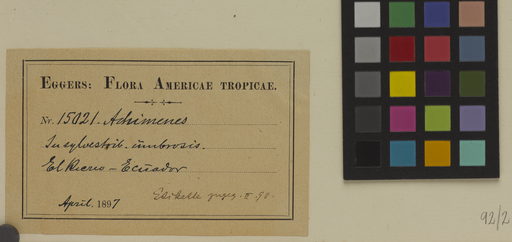 EGGERS: FLORA AMERICAE TROPICAE.
Nr. 15021. Achimenes
In sylvestrib. umbrosis.
El Recreo - Ecuador
April. 1897
Etikette II. 90.
92/2